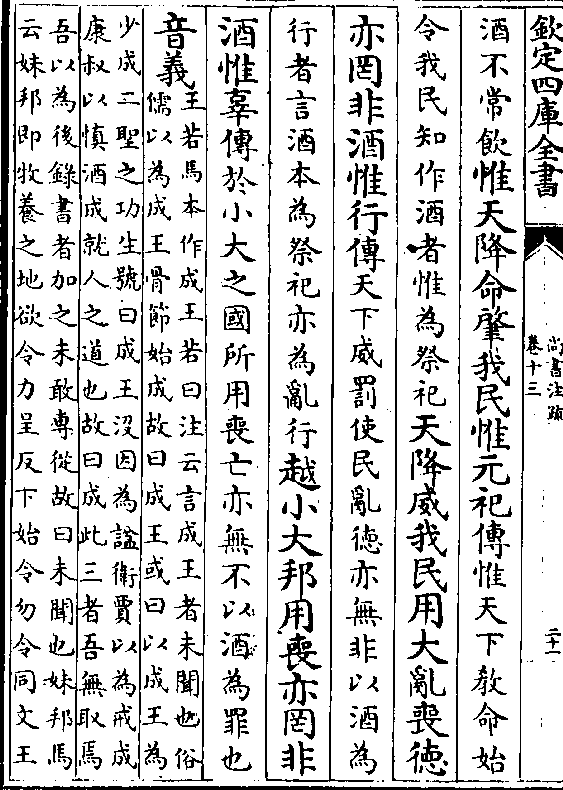 欽定四庫全書
尚書注疏
卷十三
二十一
酒不常飲惟天降命肇我民惟元祀傳惟天下教命始
令我民知作酒者惟為祭祀天降威我民用大亂喪德
亦罔非酒惟行傳天下威罰使民亂德亦無非以酒為
行者言酒本為祭祀亦為亂行越小大邦用喪亦罔非
酒惟辜傳於小大之國所用喪亡亦無不以酒為罪也
音義王若馬本作成王若曰注云言成王者未聞也俗
儒以為成王骨節始成故曰成王或曰以成王為
少成二聖之功生號曰成王沒因為諡衛賈以為戒成
康叔以慎酒成就人之道也故曰成此三者吾無取焉
吾以為後錄書者加之未敢專從故曰未聞也妹邦馬
云妹邦即牧養之地欲令力呈反下始令勿令同文王